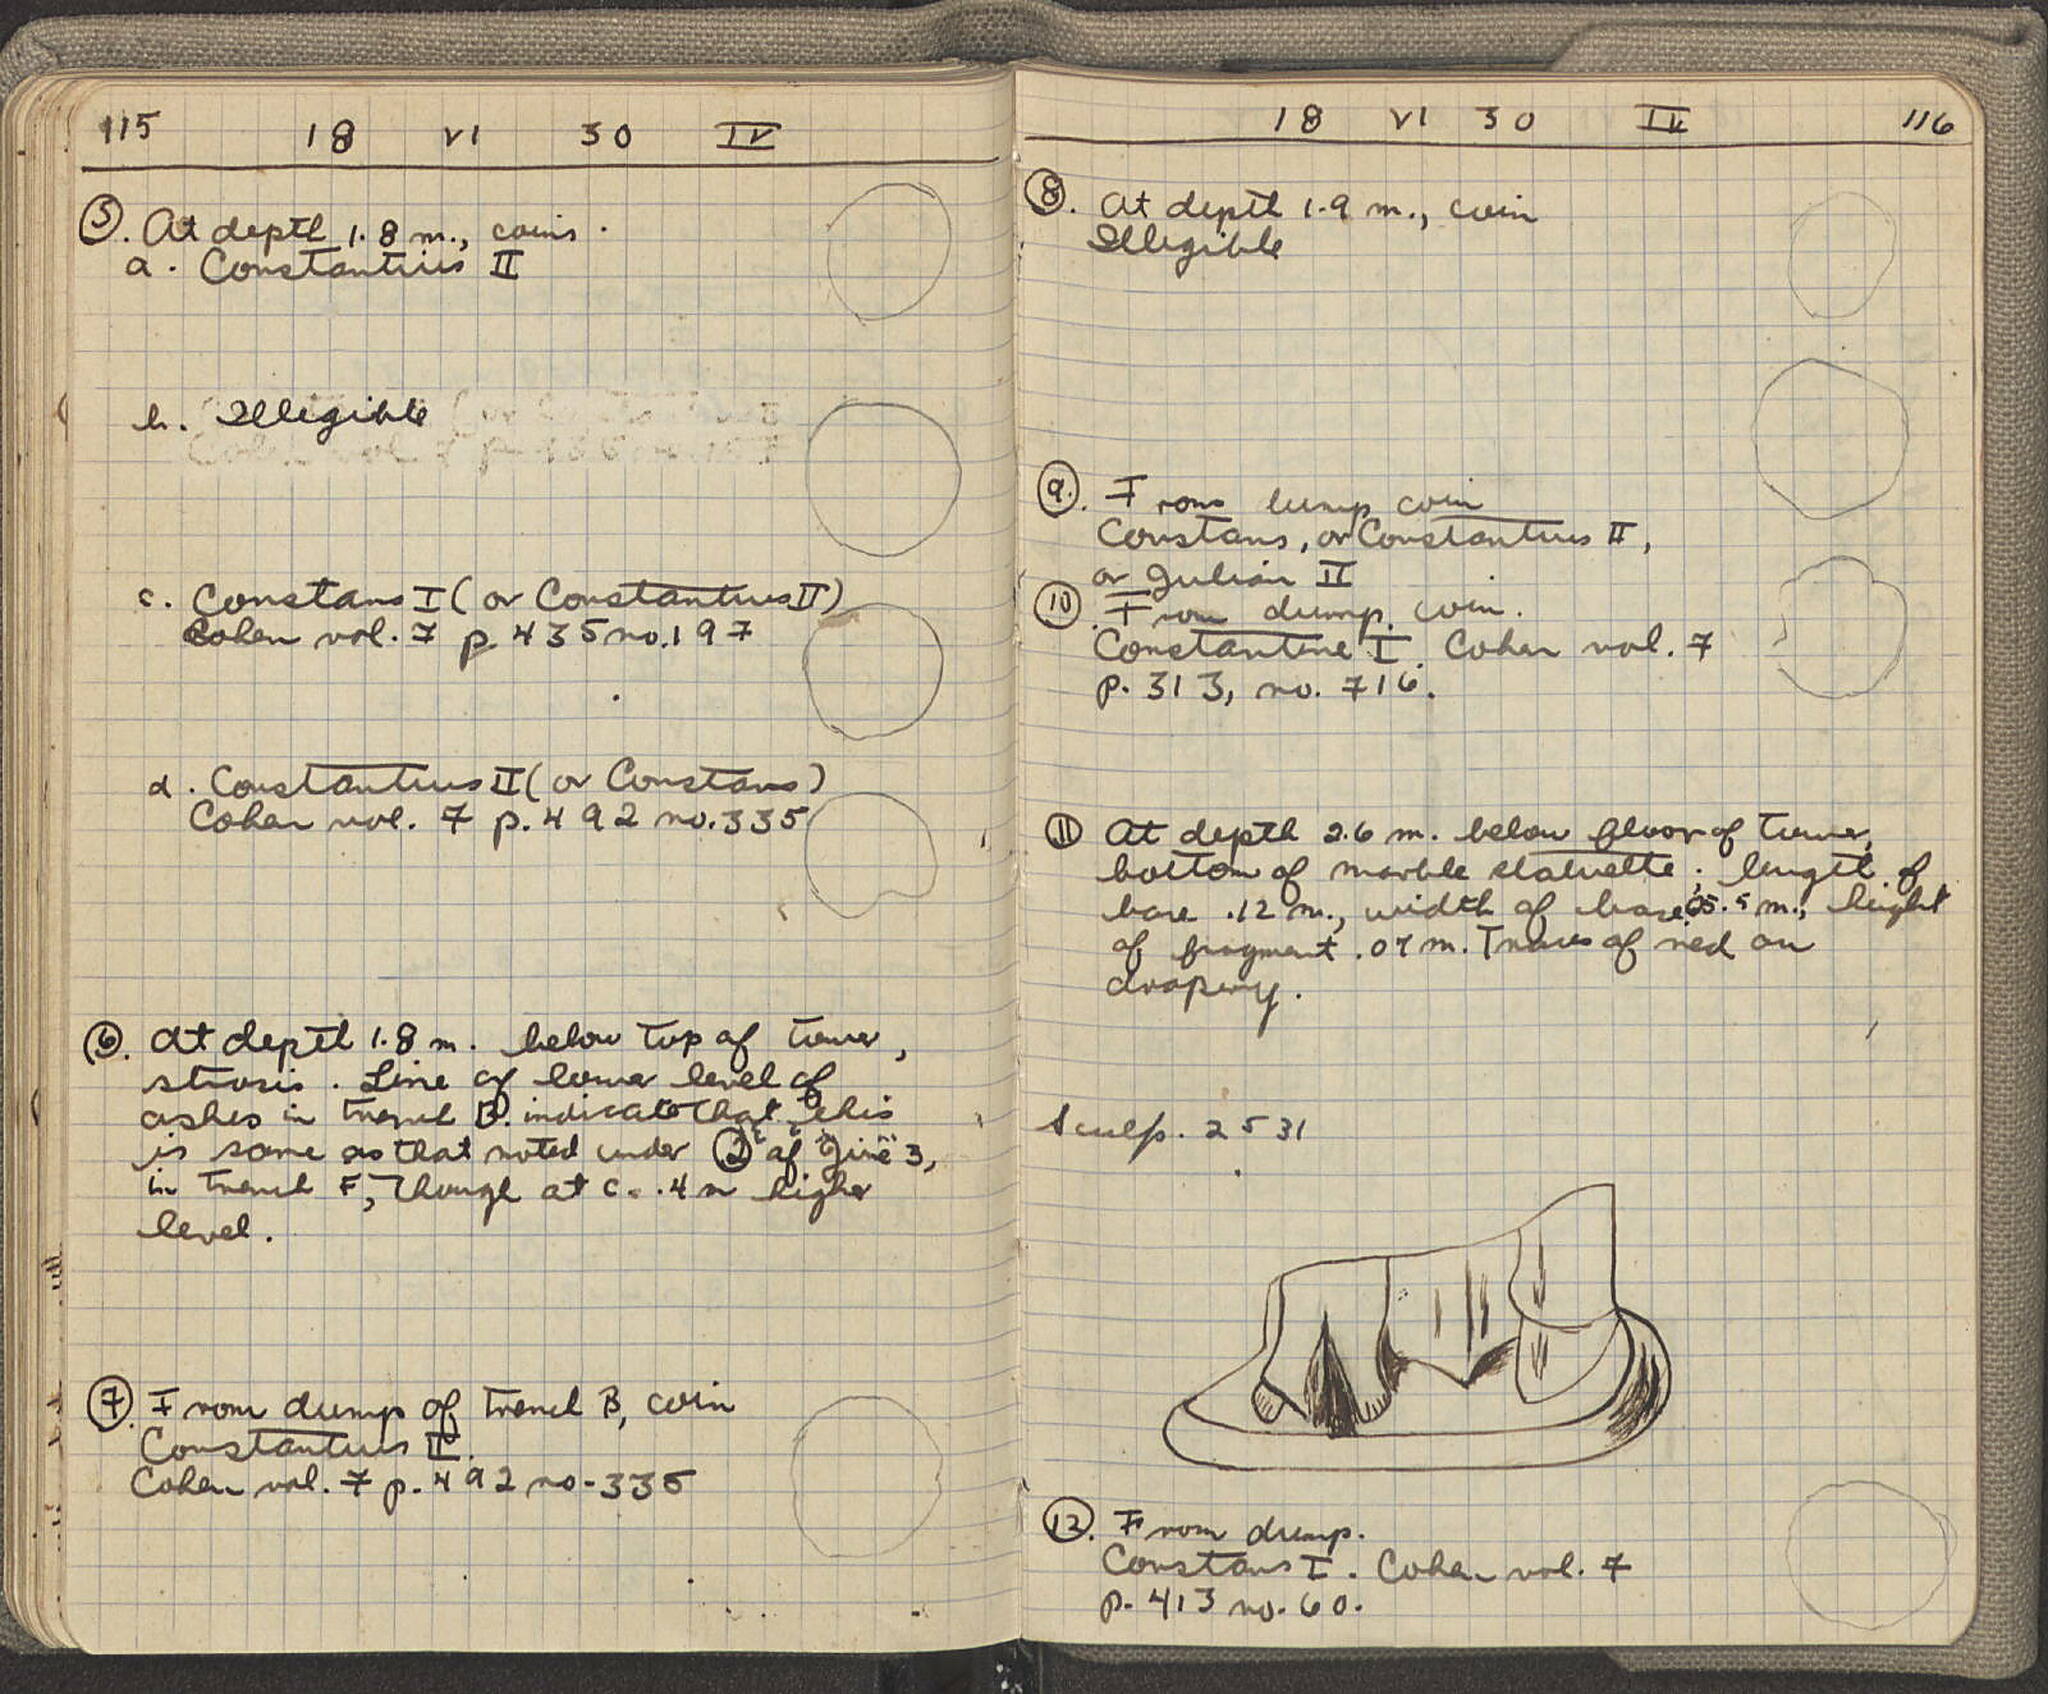 115 18 VI 30 IV
5. At depth 1.8 m., coins.
a. Constantius II
b. Illegible
c. Constans I (or Constantius II)
Cohen vol. 7 p. 435 no. 197
d. Constantius II (or Constans)
Cohen vol. 7 p. 492 no. 335
6. At depth 1.8 m. below top of tower,
strosis. Line of lower level of
ashes in trench B. indicate that this
is same as that noted under 2 of June 3,
in trench F, though at c. .4 m higher
level.
7. From dump of trench B, coin
Constantius II.
Cohen vol. 7 p. 492 no. 335
18 VI 30 IV 116
8. At depth 1.9 m., coin
Illegible
9. From dump coin
Constans, or Constantius II,
or Julian II
10. From dump, coin.
Constantine I. Cohen vol. 7
p. 313, no. 716.
11 At depth 2.6 m. below floor of tower,
bottom of marble statuette; length of
base .12 m., width of base m., height
of fragment m. Traces of red on
drapery.
Sculp. 2531
12. From dump.
Constans I. Cohen vol. 7
p. 413 no. 60.